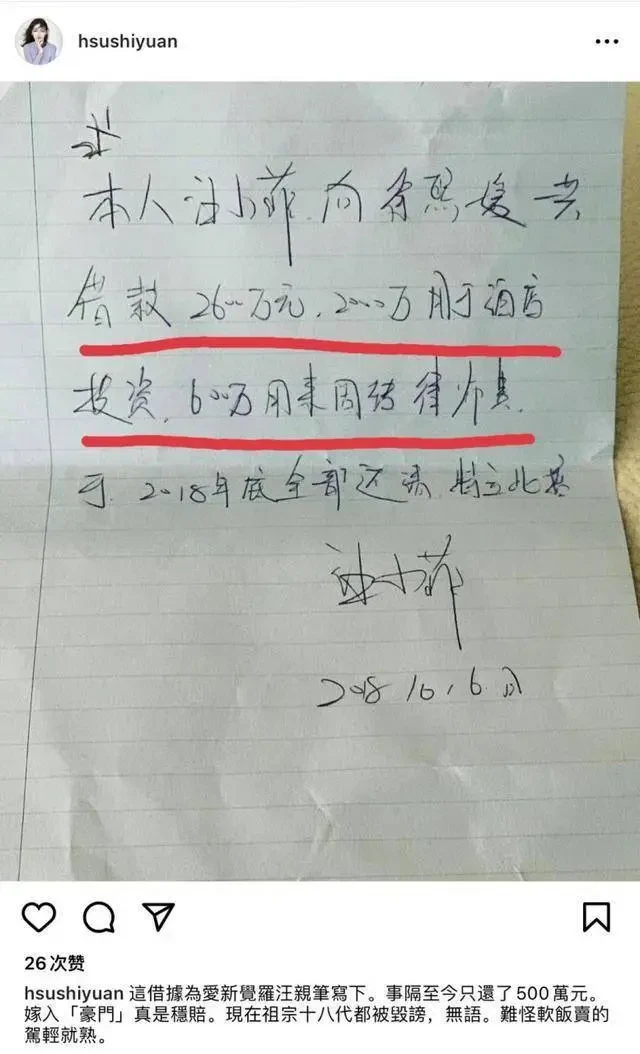 hsushiyuan
本人汪小菲向徐熙媛共
借款2600万元,2000万用于酒店
投资,600万用来周转律师费,
于2018年底全部还清,特立此据
汪小菲
2018 10.6.
26次赞
hsushiyuan 這借據為愛新覺羅汪親筆寫下。事隔至今只還了500萬元。
嫁入「豪門」真是穩賠。現在祖宗十八代都被毀謗，無語。難怪軟飯賣的
駕輕就熟。